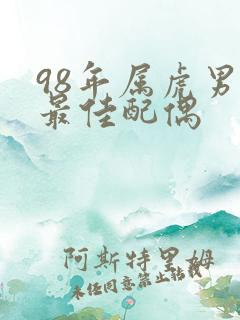 98年属虎男
最佳配偶
阿斯特里姆
未经同意禁止转载